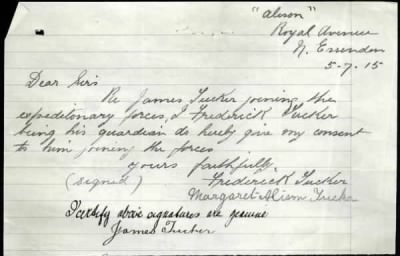 "alison"
Royal Avenue
N. Essendon
5-7-15
Dear Sirs
Re James Tucker joining the
expeditionary forces, I Frederick Tucker
being his guardian do hereby give my consent
to him joining the forces
yours faithfully
(signed) Frederick Tucker
Margaret Alison Tucker
I certify above signatures are genuine
James Tucker